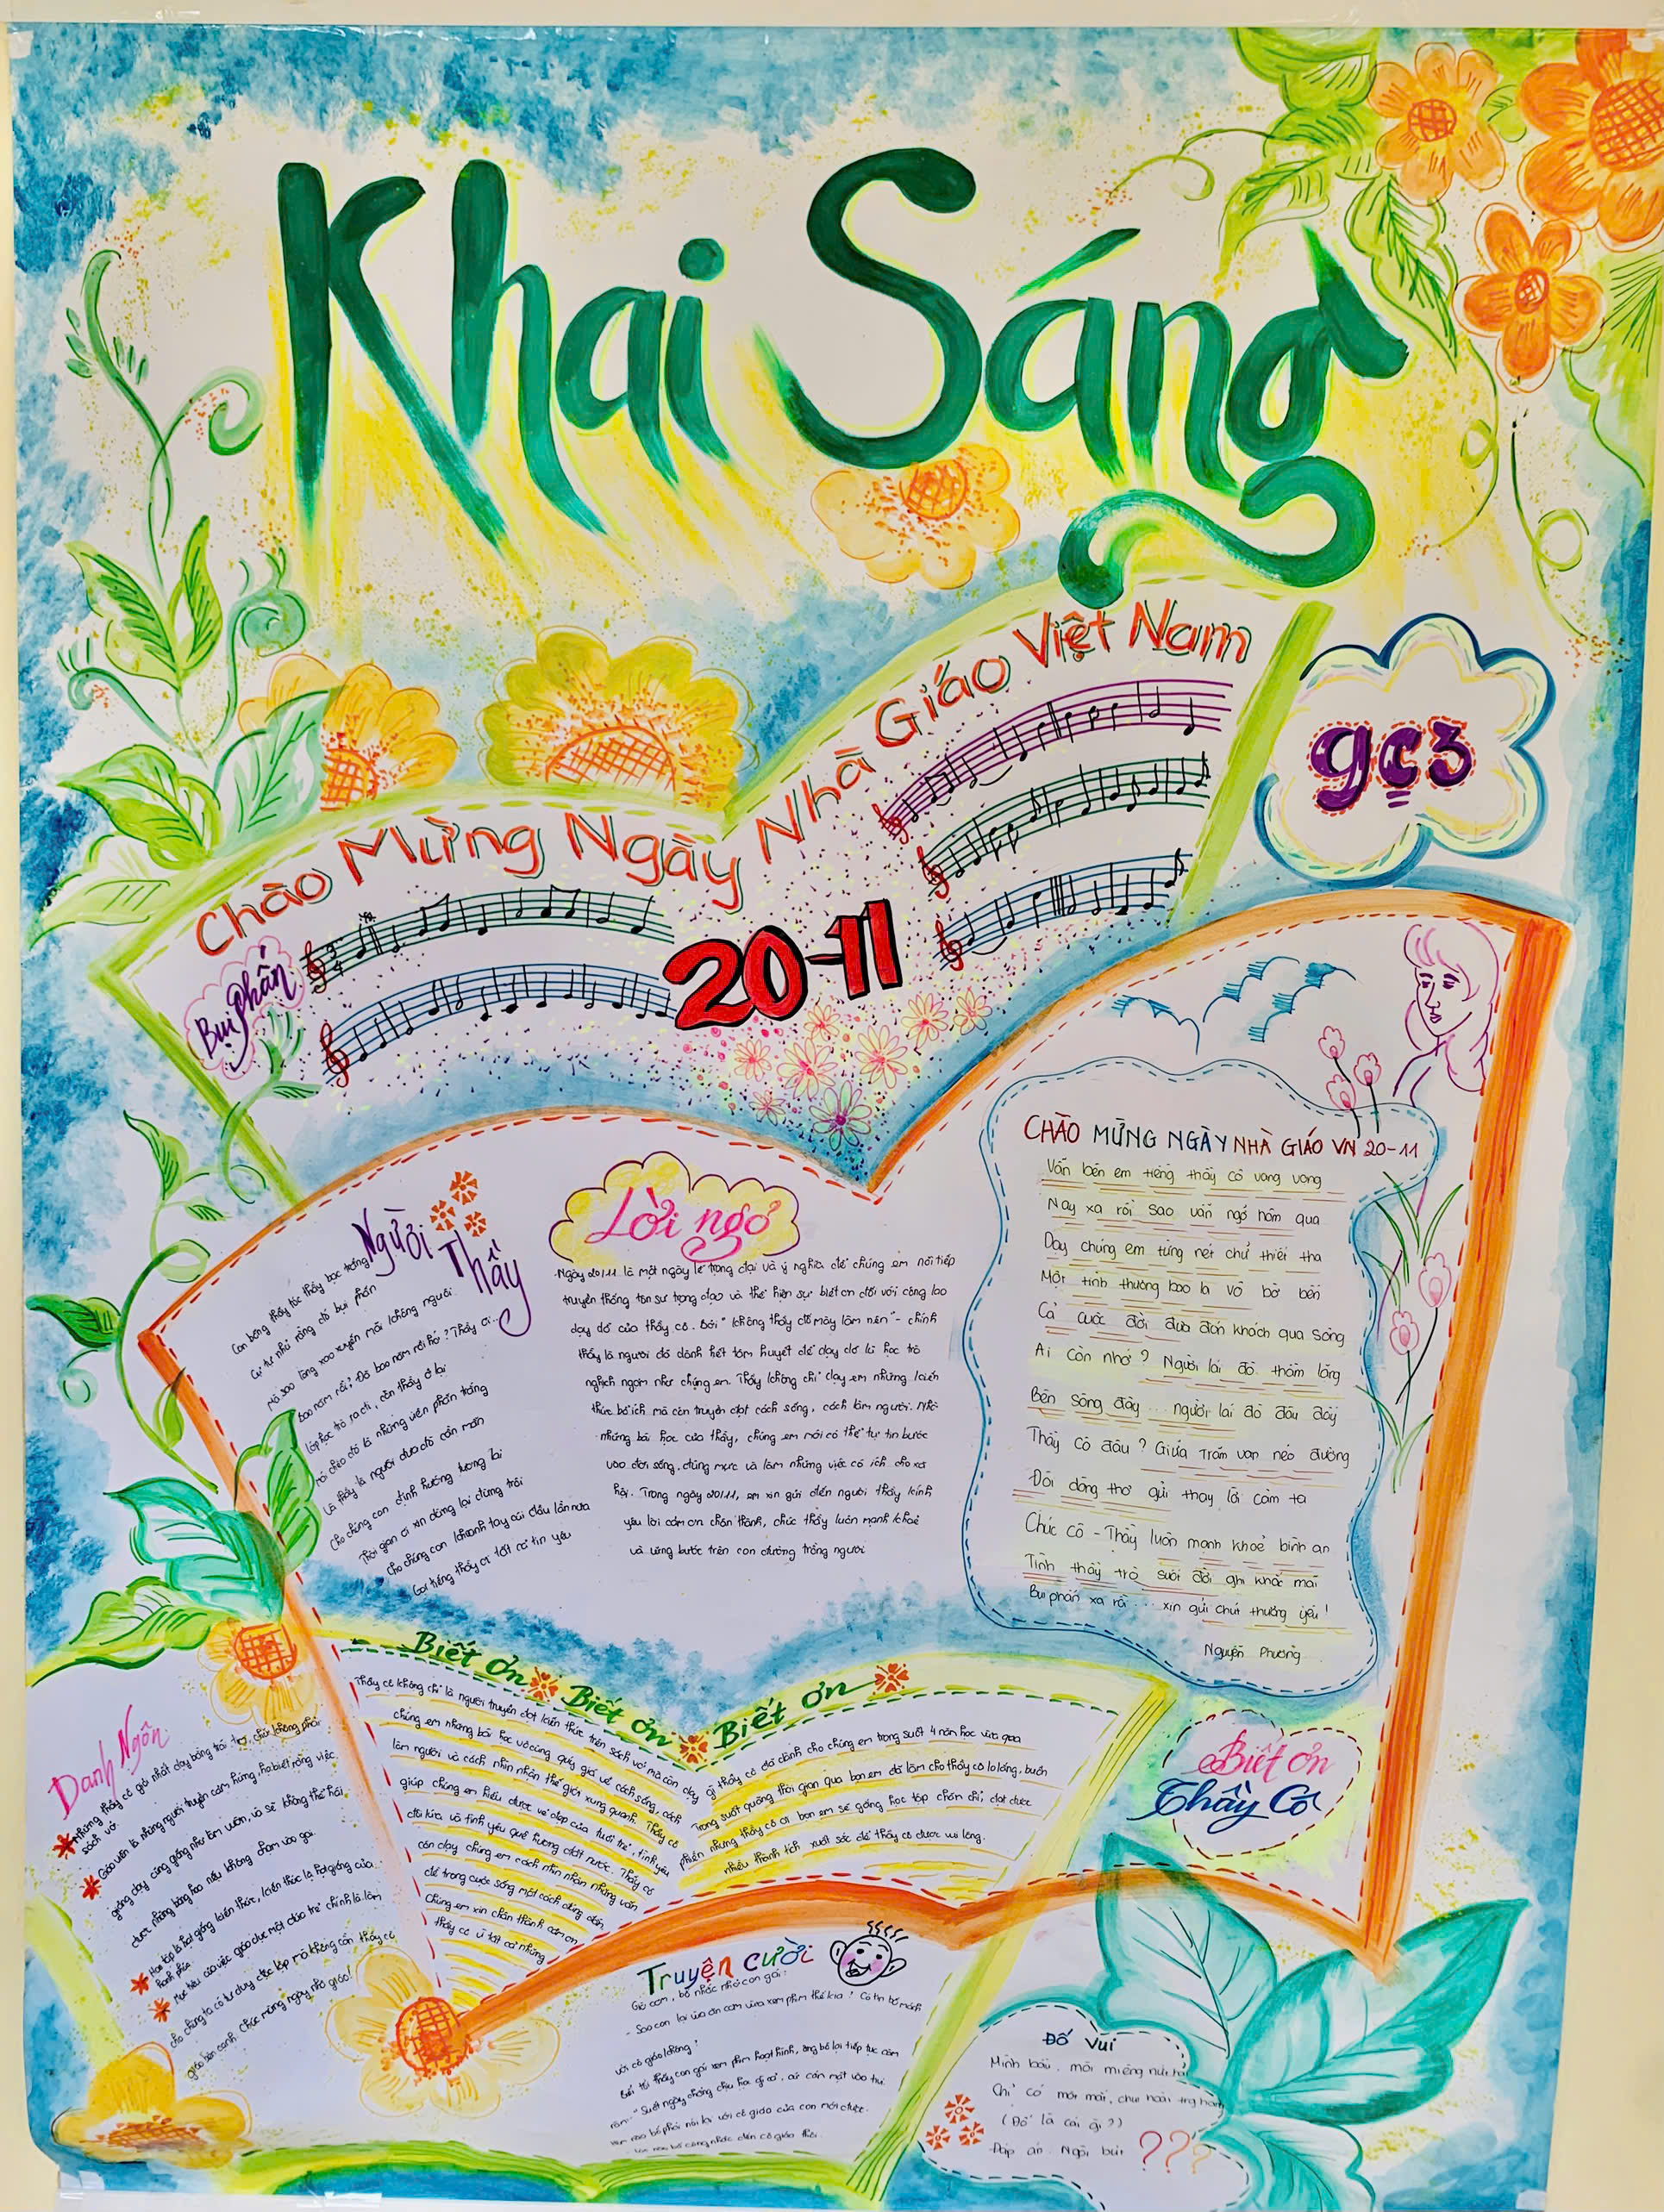 Khai Sáng
Chào Mừng Ngày Nhà Giáo Việt Nam
20-11
9c3
Bụi phấn
Người Thầy
Con bỗng thấy tóc thầy bạc trắng
Cứ tự nhủ rằng đó bụi phấn
Mà sao lòng xao xuyến mãi không nguôi
bao năm rồi? Đã bao năm rồi hở? Thầy ơi...
lớp học trò ra đi, còn thầy ở lại
mái chèo đó là những viên phấn trắng
Và thầy là người đưa đò cần mẫn
Cho chúng con định hướng tương lai
Thời gian ơi xin dừng lại đừng trôi
Cho chúng con khoanh tay cúi đầu lần nữa
Gọi tiếng thầy ơi tất cả tin yêu
Lời ngỏ
Ngày 20/11 là một ngày lễ trọng đại và ý nghĩa để chúng em nối tiếp
truyền thống tôn sư trọng đạo và thể hiện sự biết ơn đối với công lao
dạy dỗ của thầy cô. Bởi "không thầy đố mày làm nên" - chính
thầy là người đã dành hết tâm huyết để dạy dỗ lũ học trò
nghịch ngợm như chúng em. Thầy không chỉ dạy em những kiến
thức bổ ích mà còn truyền đạt cách sống, cách làm người. Nhờ
những bài học của thầy, chúng em mới có thể tự tin bước
vào đời sống, đúng mực và làm những việc có ích cho xã
hội. Trong ngày 20/11, em xin gửi đến người thầy kính
yêu lời cảm ơn chân thành, chúc thầy luôn mạnh khoẻ
và vững bước trên con đường trồng người
CHÀO MỪNG NGÀY NHÀ GIÁO VN 20-11
Vẫn bên em tiếng thầy cô vang vọng
Nay xa rồi sao vẫn ngỡ hôm qua
Dạy chúng em từng nét chữ thiết tha
Một tình thương bao la vô bờ bến
Cả cuộc đời đưa đón khách qua sông
Ai còn nhớ? Người lái đò thầm lặng
Bến sông đây... người lái đò đâu đây
Thầy cô đâu? Giữa trăm vạn nẻo đường
Đôi dòng thơ gửi thay lời cảm tạ
Chúc Cô - Thầy luôn mạnh khoẻ bình an
Tình thầy trò suốt đời ghi khắc mãi
Bụi phấn xa rồi... xin gửi chút thương yêu!
Nguyễn Phương
Danh Ngôn
Những thầy cô giỏi nhất dạy bằng trái tim, chứ không phải
sách vở
Giáo viên là những người truyền cảm hứng, họ biết rằng việc
giảng dạy cũng giống như làm vườn, và sẽ không thể hái
được những bông hoa nếu không chạm vào gai
Học tập là hạt giống kiến thức, kiến thức là hạt giống của
hạnh phúc
Mục tiêu của việc giáo dục một đứa trẻ chính là làm
cho chúng ta có tư duy độc lập mà không cần thầy cô
giáo bên cạnh. Chúc mừng ngày nhà giáo!
Biết ơn Biết ơn Biết ơn
Thầy cô không chỉ là người truyền đạt kiến thức trên sách vở mà còn dạy
chúng em những bài học vô cùng quý giá về cách sống, cách
làm người và cách nhìn nhận thế giới xung quanh. Thầy cô
giúp chúng em hiểu được vẻ đẹp của tuổi trẻ, tình yêu
đôi lứa và tình yêu quê hương đất nước. Thầy cô
còn dạy chúng em cách nhìn nhận những vấn
đề trong cuộc sống một cách đúng đắn.
Chúng em xin chân thành cảm ơn
thầy cô vì tất cả những
gì thầy cô đã dành cho chúng em trong suốt 4 năm học vừa qua
Trong suốt quãng thời gian qua bọn em đã làm cho thầy cô lo lắng, buồn
phiền nhưng thầy cô ơi bọn em sẽ gắng học tập chăm chỉ, đạt được
nhiều thành tích xuất sắc để thầy cô được vui lòng.
Biết ơn
Thầy Cô
Truyện cười
Giờ cơm, bố nhắc nhở con gái:
- Sao con lại vừa ăn cơm vừa xem phim thế kia? Có tin bố mách
với cô giáo không?
Bố
Đố Vui
Mình bầu, mỗi miệng
Chỉ có
(Đố là cái gì?)
Đáp án. Ngòi bút ???